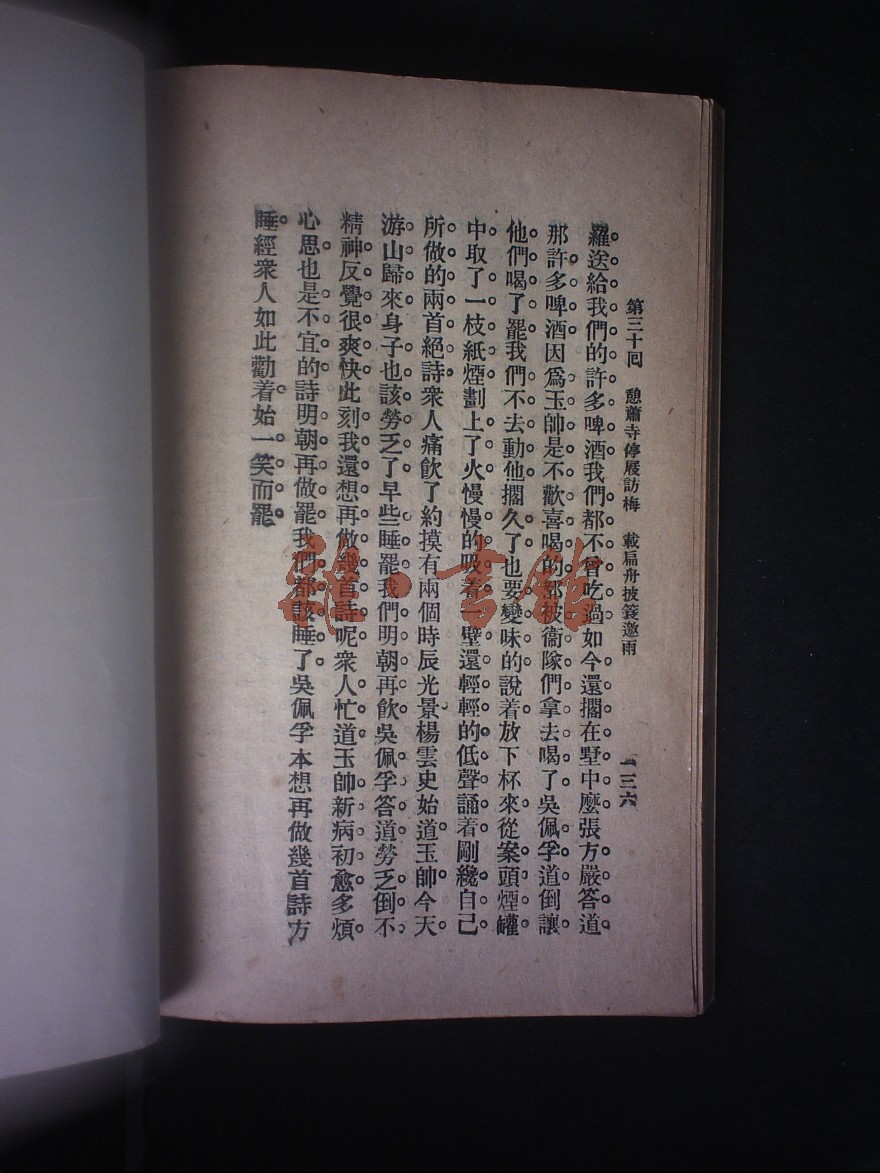 第三十回　憩蕭寺停屐訪梅　載扁舟披簑邀雨　一三六
羅送給我們的許多啤酒我們都不曾吃過如今還擱在墅中麼張方嚴答道
那許多啤酒因爲玉帥是不歡喜喝的都被衞隊們拿去喝了吳佩孚道倒讓
他們喝了罷我們不去動他擱久了也要變味的說着放下杯來從案頭煙罐
中取了一枝紙煙劃上了火慢慢的吸着一壁還輕輕的低聲誦着剛纔自己
所做的兩首絕詩衆人痛飲了約摸有兩個時辰光景楊雲史始道玉帥今天
游山歸來身子也該勞乏了早些睡罷我們明朝再飲吳佩孚答道勞乏倒不
精神反覺很爽快此刻我還想再做幾首詩呢衆人忙道玉帥新病初愈多煩
心思也是不宜的詩明朝再做罷我們都該睡了吳佩孚本想再做幾首詩方
睡經衆人如此勸着始一笑而罷
雜·書館